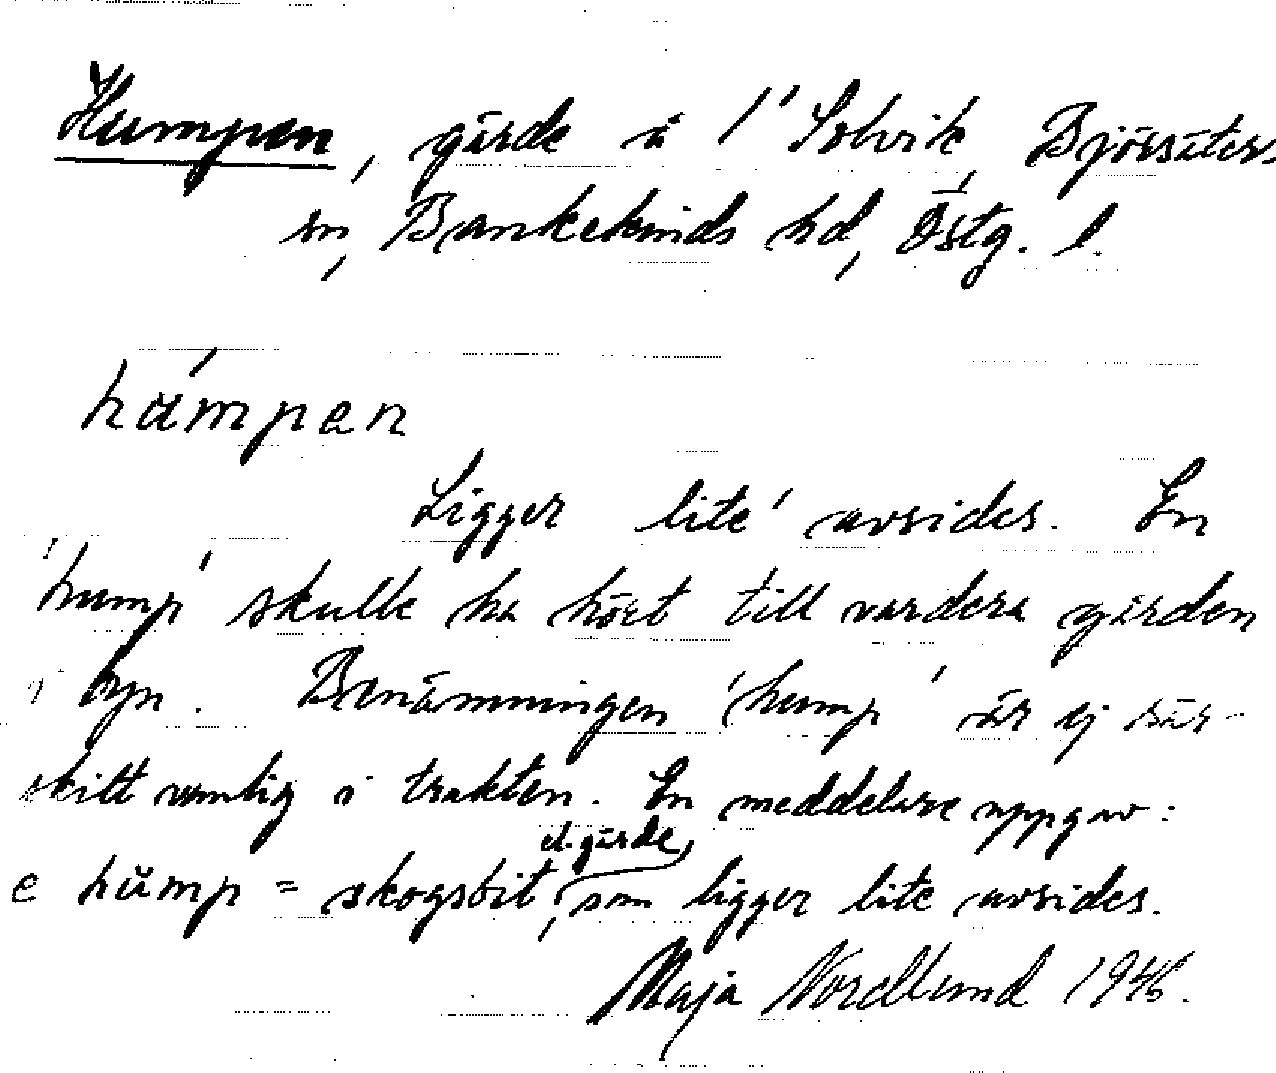 Humpen, gärde å 1' Solvik, Björsäters
sn, Bankekinds hd, Östg. l.
hu̇́mpen
Ligger lite' avsides. En
'hump' skulle ha hört till vardera gården
i byn. Benämningen 'hump' är ej sär-
skilt vanlig i trakten. En meddelare uppgav:
el. gärde,
e hump = skogsbit, som ligger lite avsides.
Maja Nordlund 1946.